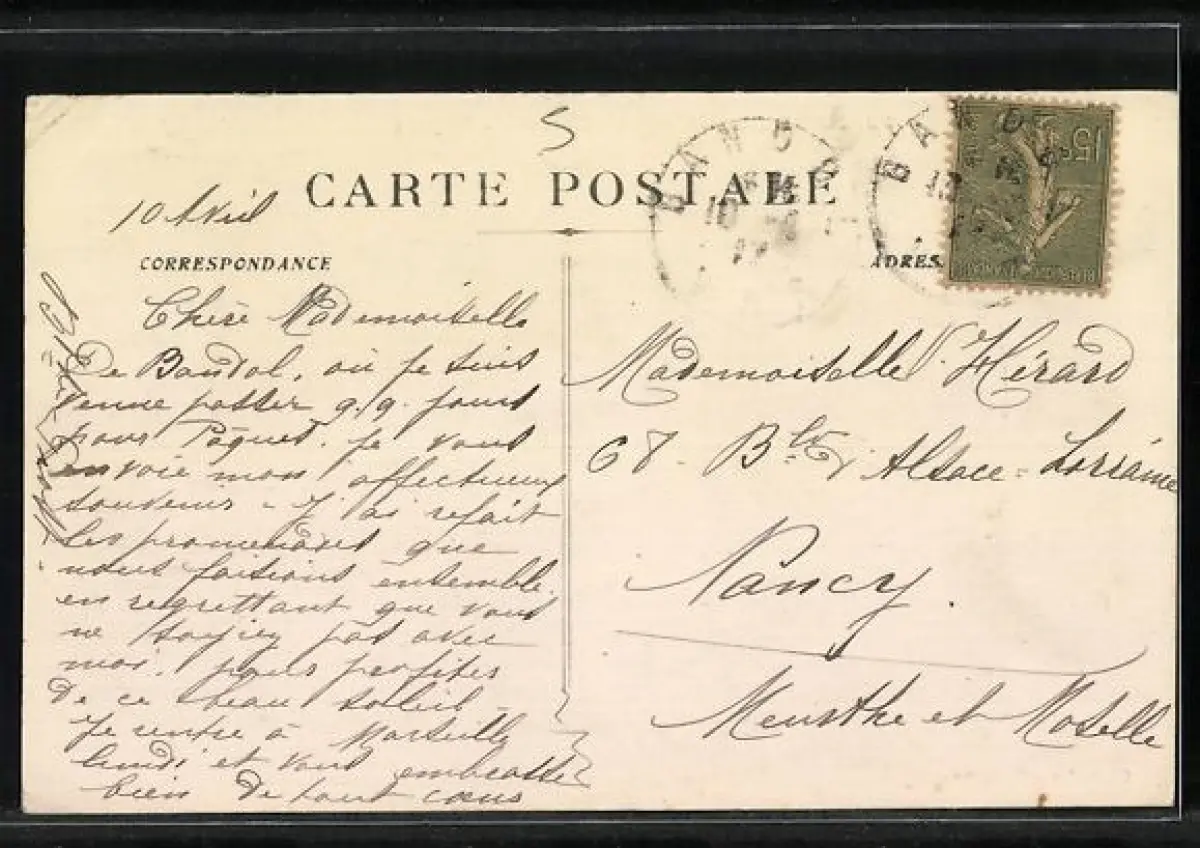 S
CARTE POSTALE
10 Avril
CORRESPONDANCE
Chère Mademoiselle
De Bandol, où je suis
venue passer q.q. jours
pour Pâques. je vous
envoie mon affectueux
souvenir - J'ai refait
les promenades que
nous faisions ensemble.
en regrettant que vous
ne soyiez pas avec
moi. pour profiter
de ce beau soleil -
Je rentre à Marseille
lundi et vous embrasse
bien de tout cœur
BANDO
10
BAND
15c
ADRES
Mademoiselle Hérard
67. Bld Alsace-Lorraine
Nancy.
Meurthe et Moselle